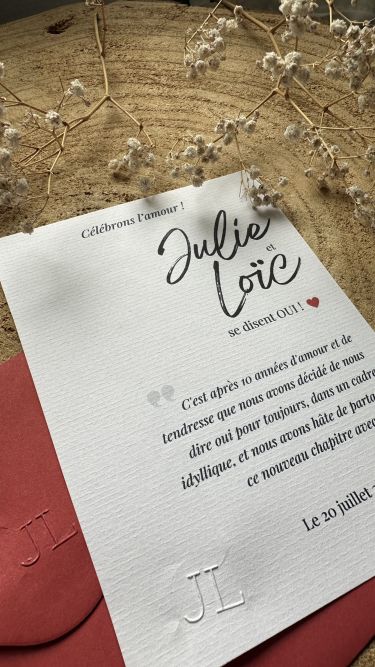 Célébrons l'amour !
Julie
et
Loïc
se disent OUI !
C'est après 10 années d'amour et de
tendresse que nous avons décidé de nous
dire oui pour toujours, dans un cadre
idyllique, et nous avons hâte de
ce nouveau chapitre avec
Le 20 juillet
JL
JL